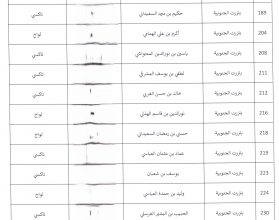 189 بنزرت الجنوبية حكيم بن مجيد السعيداني تاكسي
204 بنزرت الجنوبية أكرم بن علي الهمامي لواج
208 بنزرت الجنوبية ياسين بن نورالدين تاكسي
211 بنزرت الجنوبية لطفي بن يوسف المشرقي تاكسي
212 بنزرت الجنوبية خالد بن حسن الغربي تاكسي
216 بنزرت الجنوبية نورالدين بن قاسم الهذلي لواج
218 بنزرت الجنوبية حسني بن رمضان السعيداني لواج
219 بنزرت الجنوبية عماد بن عثمان العباسي تاكسي
223 بنزرت الجنوبية يوسف بن شعبان تاكسي
224 بنزرت الجنوبية وليد بن حمدة العباسي لواج
230 بنزرت الجنوبية الحبيب بن البشير تاكسي